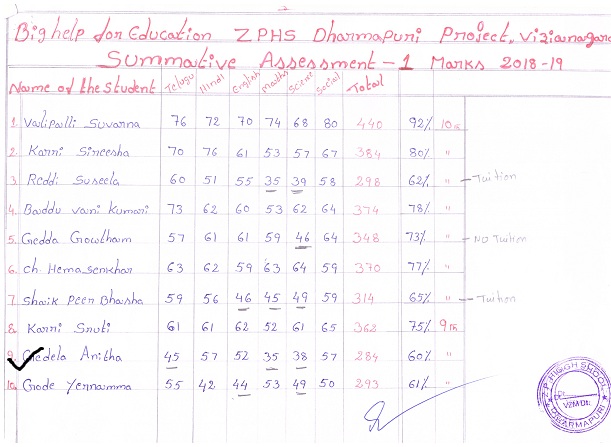 Bighelp for Education ZPHS Dharmapuri Project, Vizianagaram
Summative Assessment - 1 Marks 2018-19
Name of the Student Telugu Hindi English Maths Science Social Total
1. Valipalli Suvarna 76 72 70 74 68 80 440 92% 10th
2. Karni Sireesha 70 76 61 53 57 67 384 80% "
3. Reddi Suseela 60 51 55 35 39 58 298 62% " - Tuition
4. Baddu Vani Kumari 73 62 60 53 62 64 374 78% "
5. Gedda Gowtham 57 61 61 59 46 64 348 73% " - NO Tuition
6. Ch. Hemasenkhar 63 62 59 63 64 59 370 77% "
7. Shaik Peer Bhasha 59 56 46 45 49 59 314 65% " - Tuition
8. Karni Sruti 61 61 62 52 61 65 362 75% 9th
9. Gedela Anitha 45 57 52 35 38 57 284 60% "
10. Grode Yernamma 55 42 44 53 49 50 293 61% "
Z.P. HIGH SHOOL
VZM Dt.
DHARMAPURI